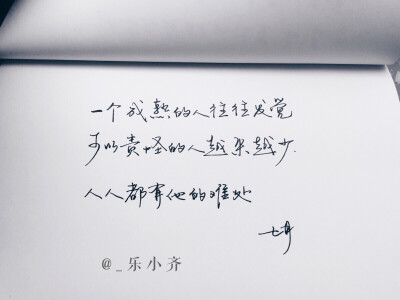 一个成熟的人往往发觉
可以责怪的人越来越少.
人人都有他的难处
@_乐小齐